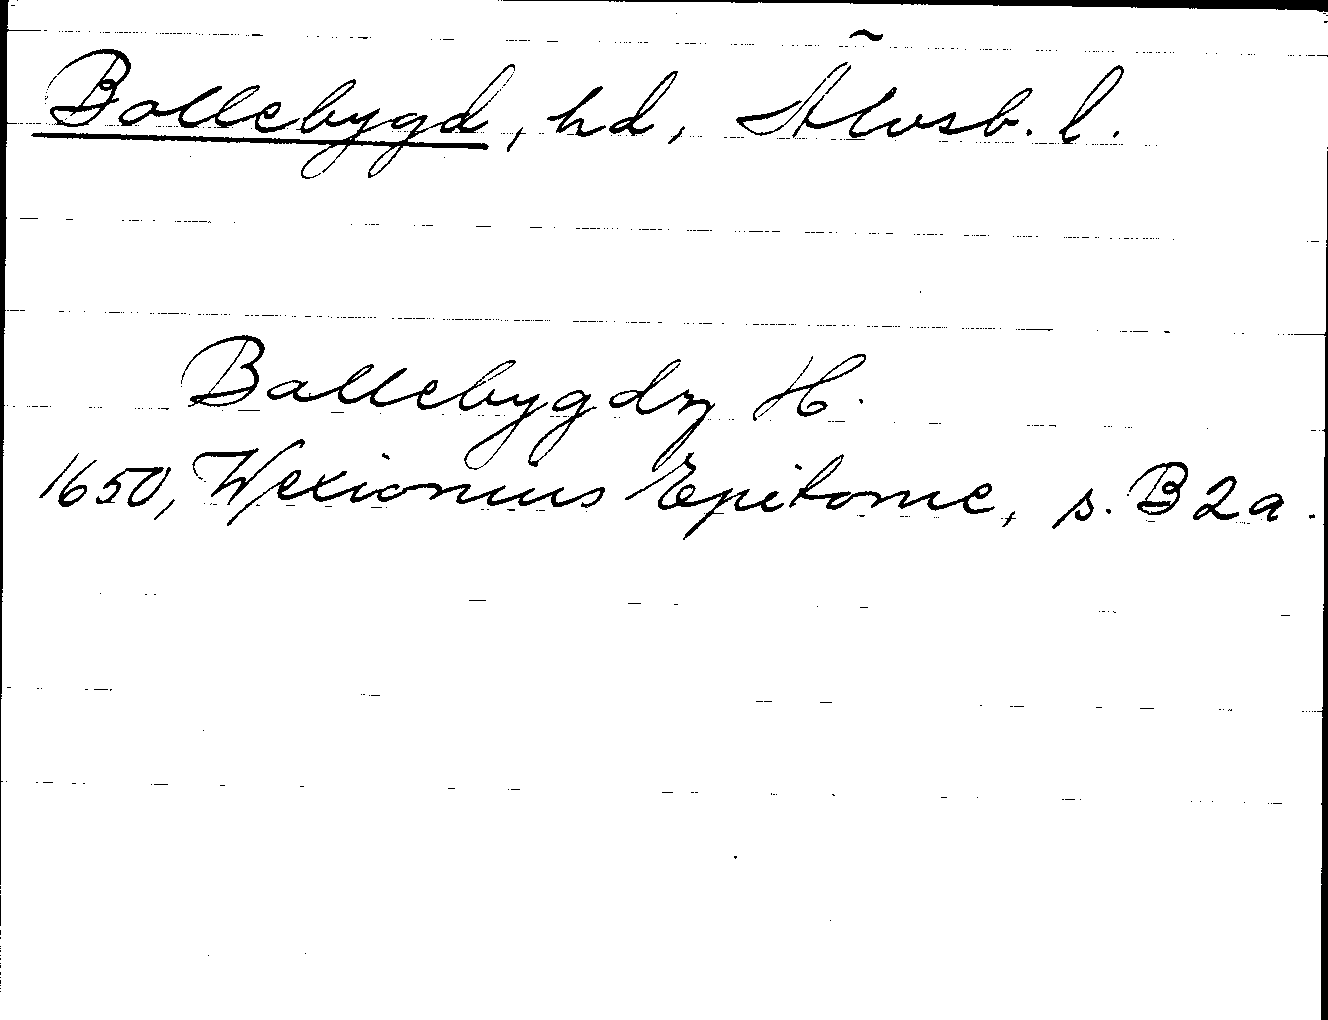 Bollebygd, hd, Älvsb. l.
Ballebygdz H.
1650, Wexionius Epitome, s. B2a.